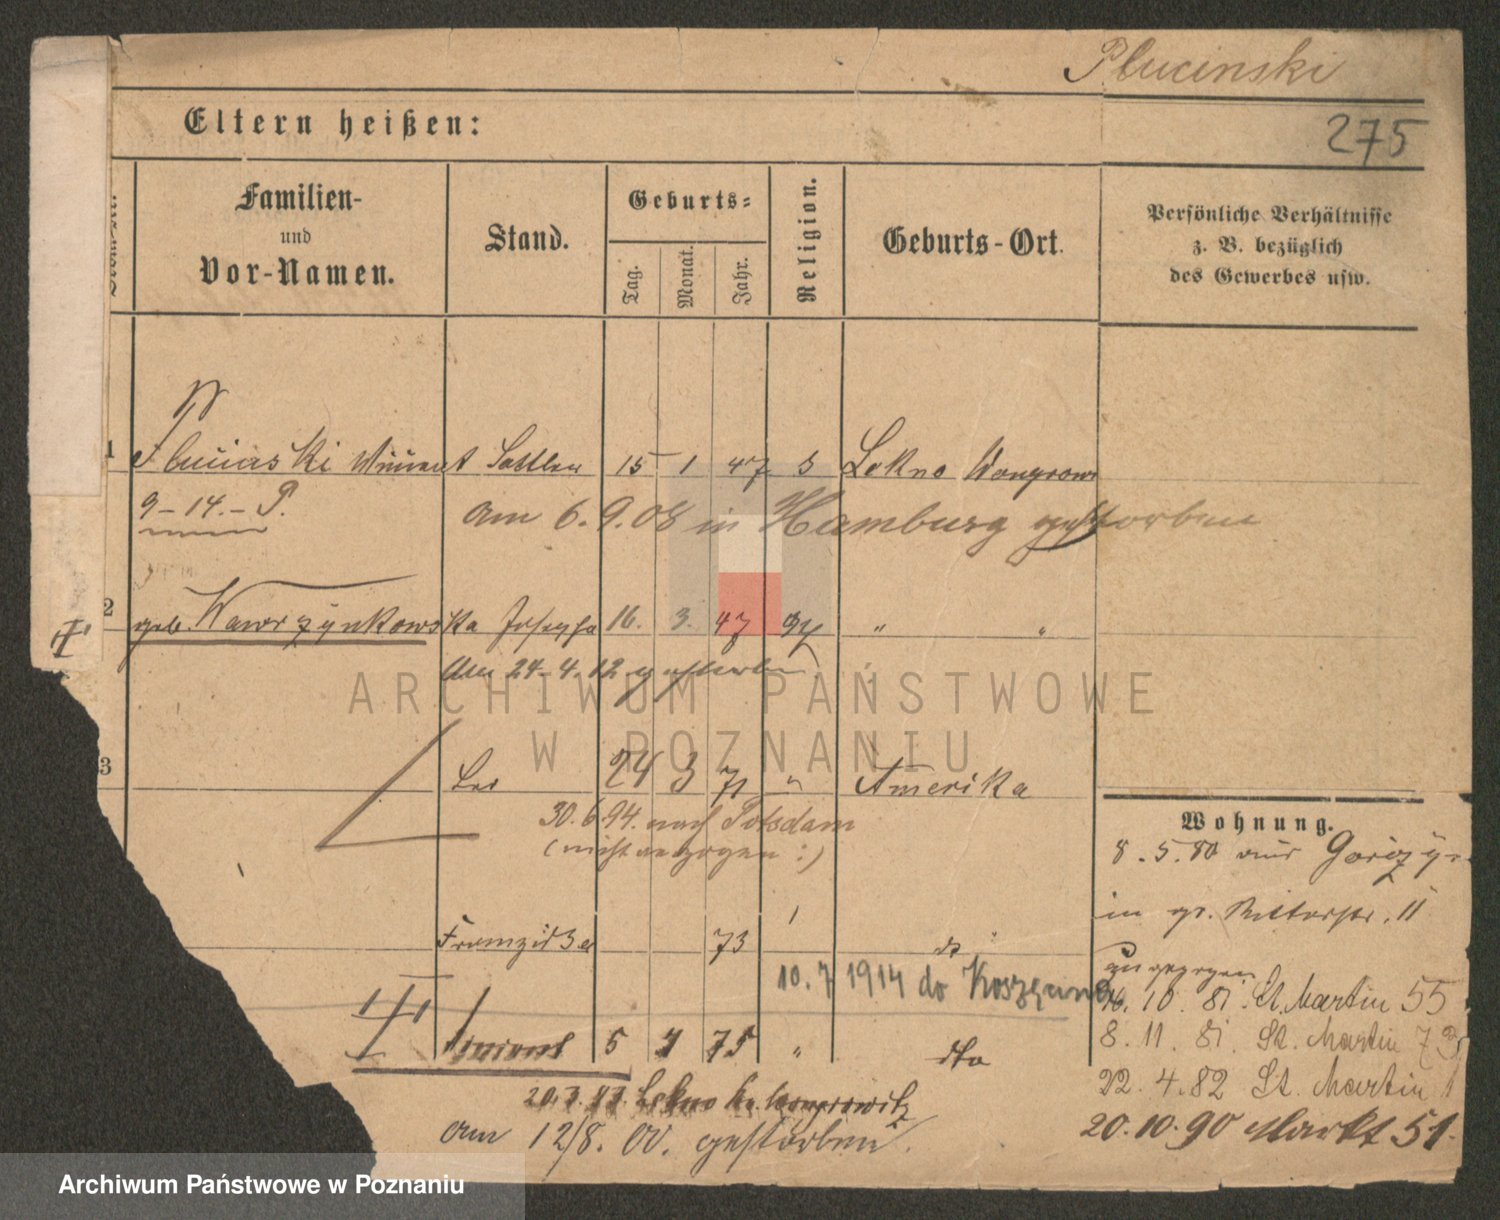 Plucinski
275
Eltern heißen:
Familien-
und
Vor-Namen.
Stand.
Geburts-
Tag.
Monat.
Jahr.
Religion.
Geburts-Ort.
Persönliche Verhältnisse
z. B. bezüglich
des Gewerbes usw.
1 Plucinski Vincent Sattler 15 1 47 Lekno Wongrow
9-14.-P.
am 6.9.08 in Hamburg gestorben
2 geb. Wawrzynkowska Josepha 16. 3. 47 " "
Am 24.4.12 gestorben
3 Leo 24 3 71 " Amerika
30.6.94. nach Potsdam
(nicht angezogen :)
Franziska 73 do
10.7 1914 do
Vincent 5 75 " dto
Lekno Kr. Wongrowitz
am 12/8. 00. gestorben.
Wohnung.
8.5.80 aus
in gr. Ritterstr. 11
zugezogen
10 81. St. Martin 55
8.11.81. St. Martin 73
22.4.82 St. Martin 1
20.10.90 Markt 51.
ARCHIWUM PAŃSTWOWE
W POZNANIU
Archiwum Państwowe w Poznaniu